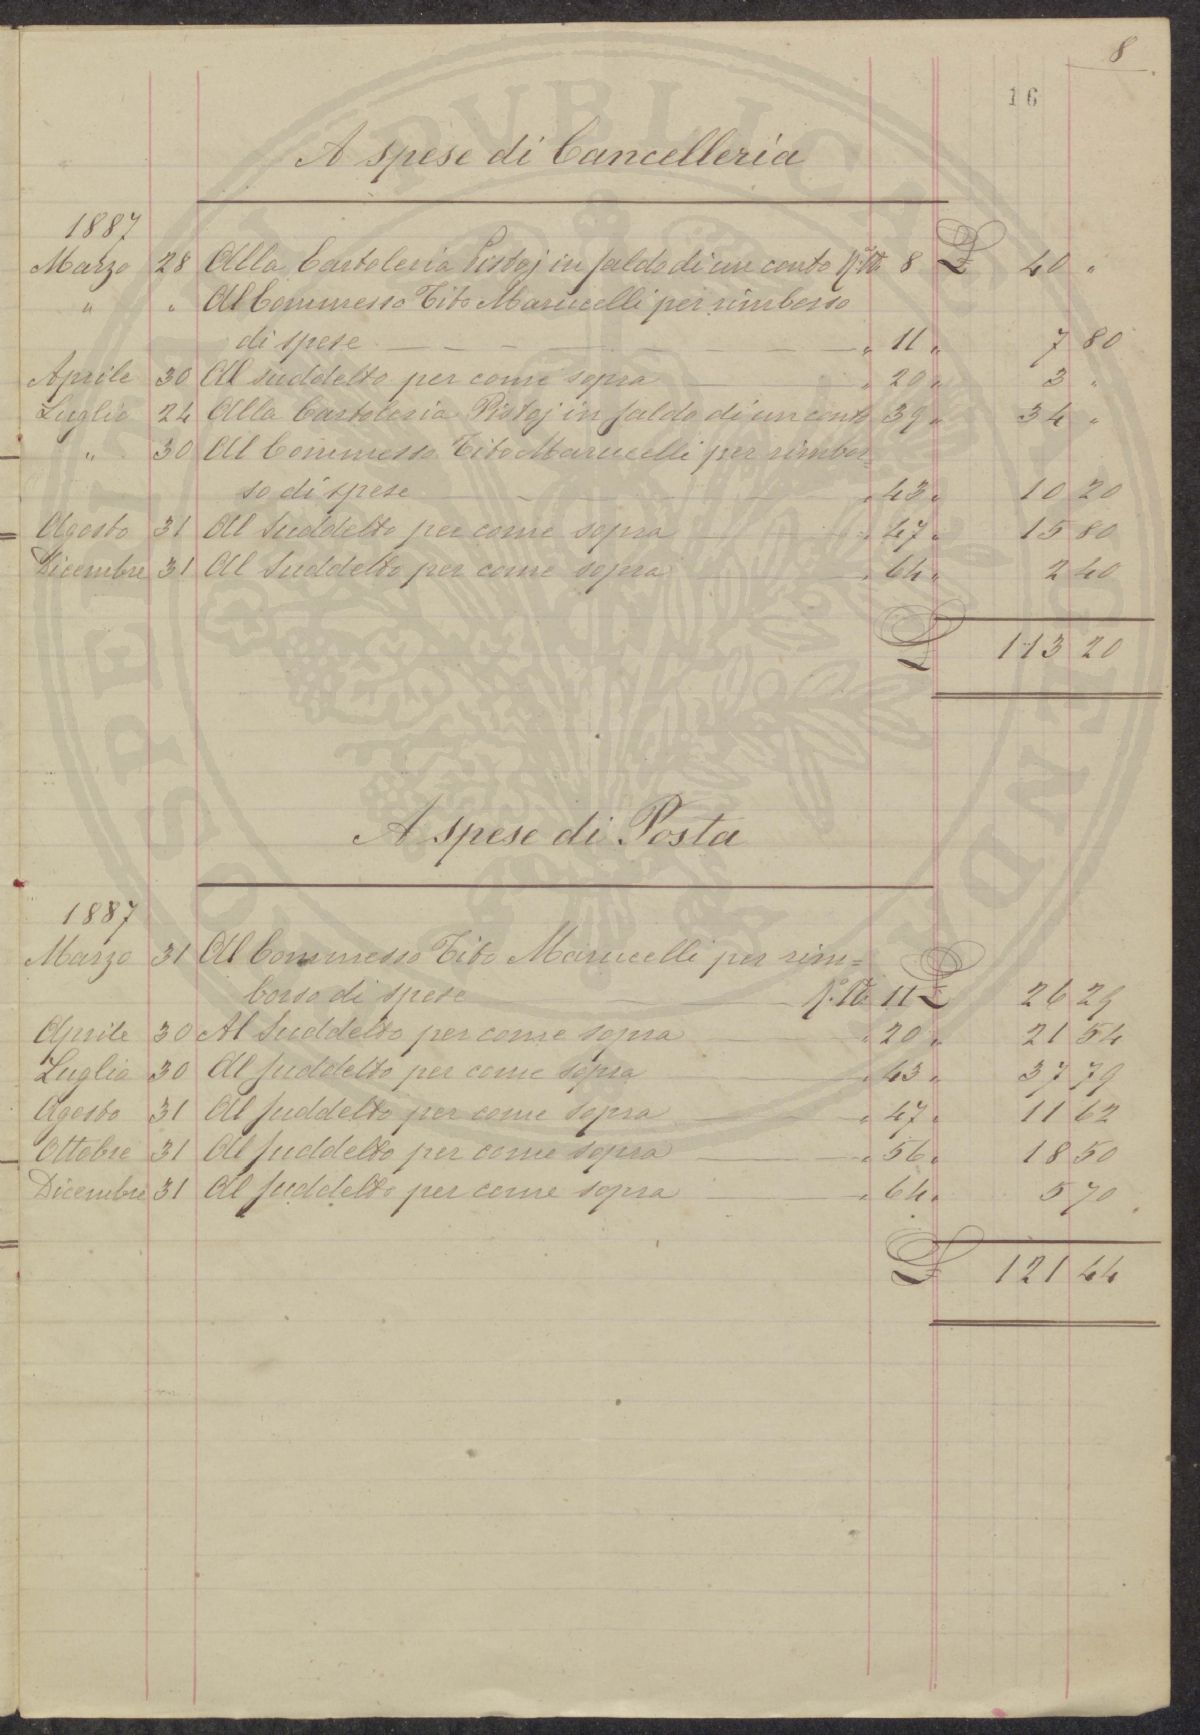 8
16
A spese di Cancelleria
1887
Marzo 28 Alla Cartoleria Pistoj in saldo di un conto N.º 8 £ 40 "
" " Al Commesso Tito Marucelli per rimborso
di spese " 11 " 7 80
Aprile 30 Al suddetto per come sopra " 20 " 3 "
Luglio 24 Alla Cartoleria Pistoj in saldo di un conto 39 " 34 "
" 30 Al Commesso Tito Marucelli per rimbor=
so di spese " 43 " 10 20
Agosto 31 Al Suddetto per come sopra " 47 " 15 80
Dicembre 31 Al Suddetto per come sopra " 64 " 2 40
£ 113 20
A spese di Posta
1887
Marzo 31 Al Commesso Tito Marucelli per rim=
borso di spese N.º 11 £ 26 29
Aprile 30 Al Suddetto per come sopra " 20 " 21 54
Luglio 30 Al suddetto per come sopra " 43 " 37 79
Agosto 31 Al suddetto per come sopra " 47 " 11 62
Ottobre 31 Al suddetto per come sopra " 56 " 18 50
Dicembre 31 Al suddetto per come sopra " 64 " 5 70
£ 121 44